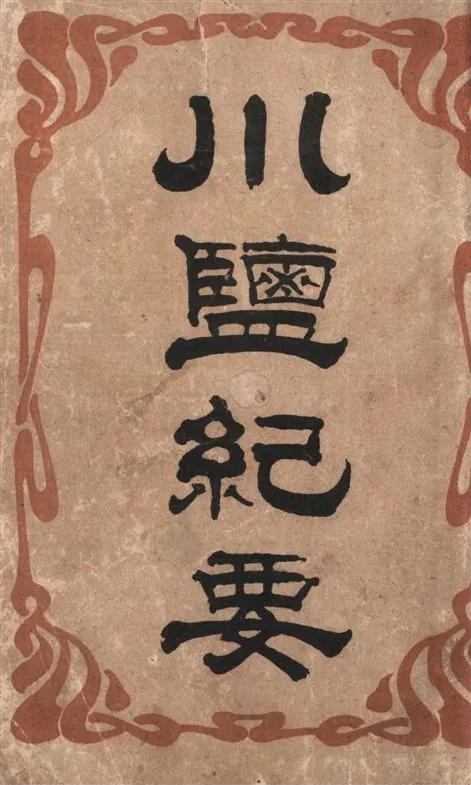 川鹽紀要